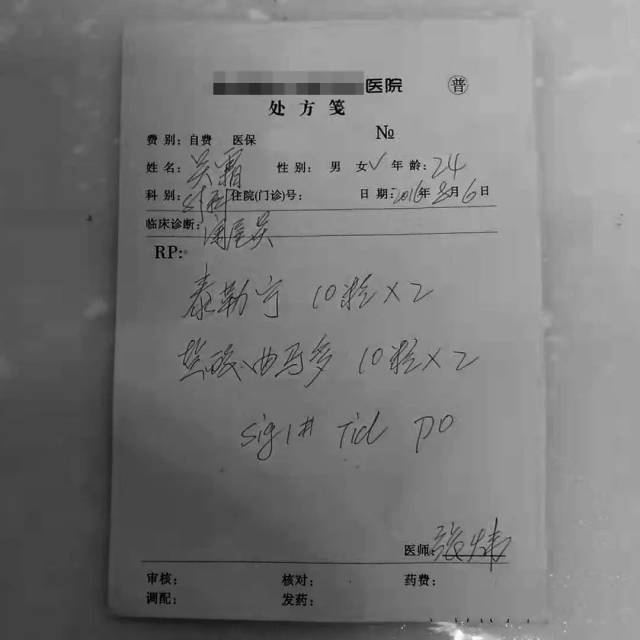 医院 普
处方笺
费别：自费 医保 №
姓名：吴霜 性别：男 女✓ 年龄：24
科别：外科 住院(门诊)号： 日期：2016年8月6日
临床诊断：阑尾炎
RP:
泰勒宁 10粒×2
盐酸曲马多 10粒×2
sig 1# Tid po
医师：张炜
审核： 核对： 药费：
调配： 发药：